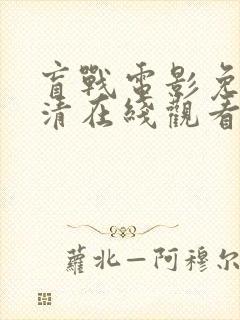 盲戰電影免
清在綫觀看
蘿北—阿穆尔